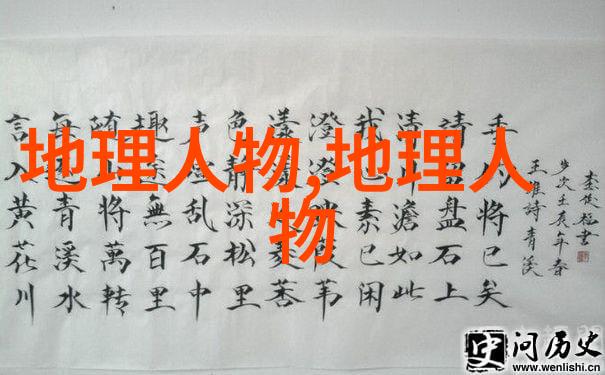 地理人物,地理人
物
言入黄花川
每逐青溪水
随山將萬转
趣途無百里
声喧乱石中
色静深松里
漾漾泛菱荇
澄澄映葭苇
我心素已闲
清川澹如此
请留盘石上
垂钓将已矣
王維詩青溪
岁次壬辰年春
问历史
www.wenlishi.cn